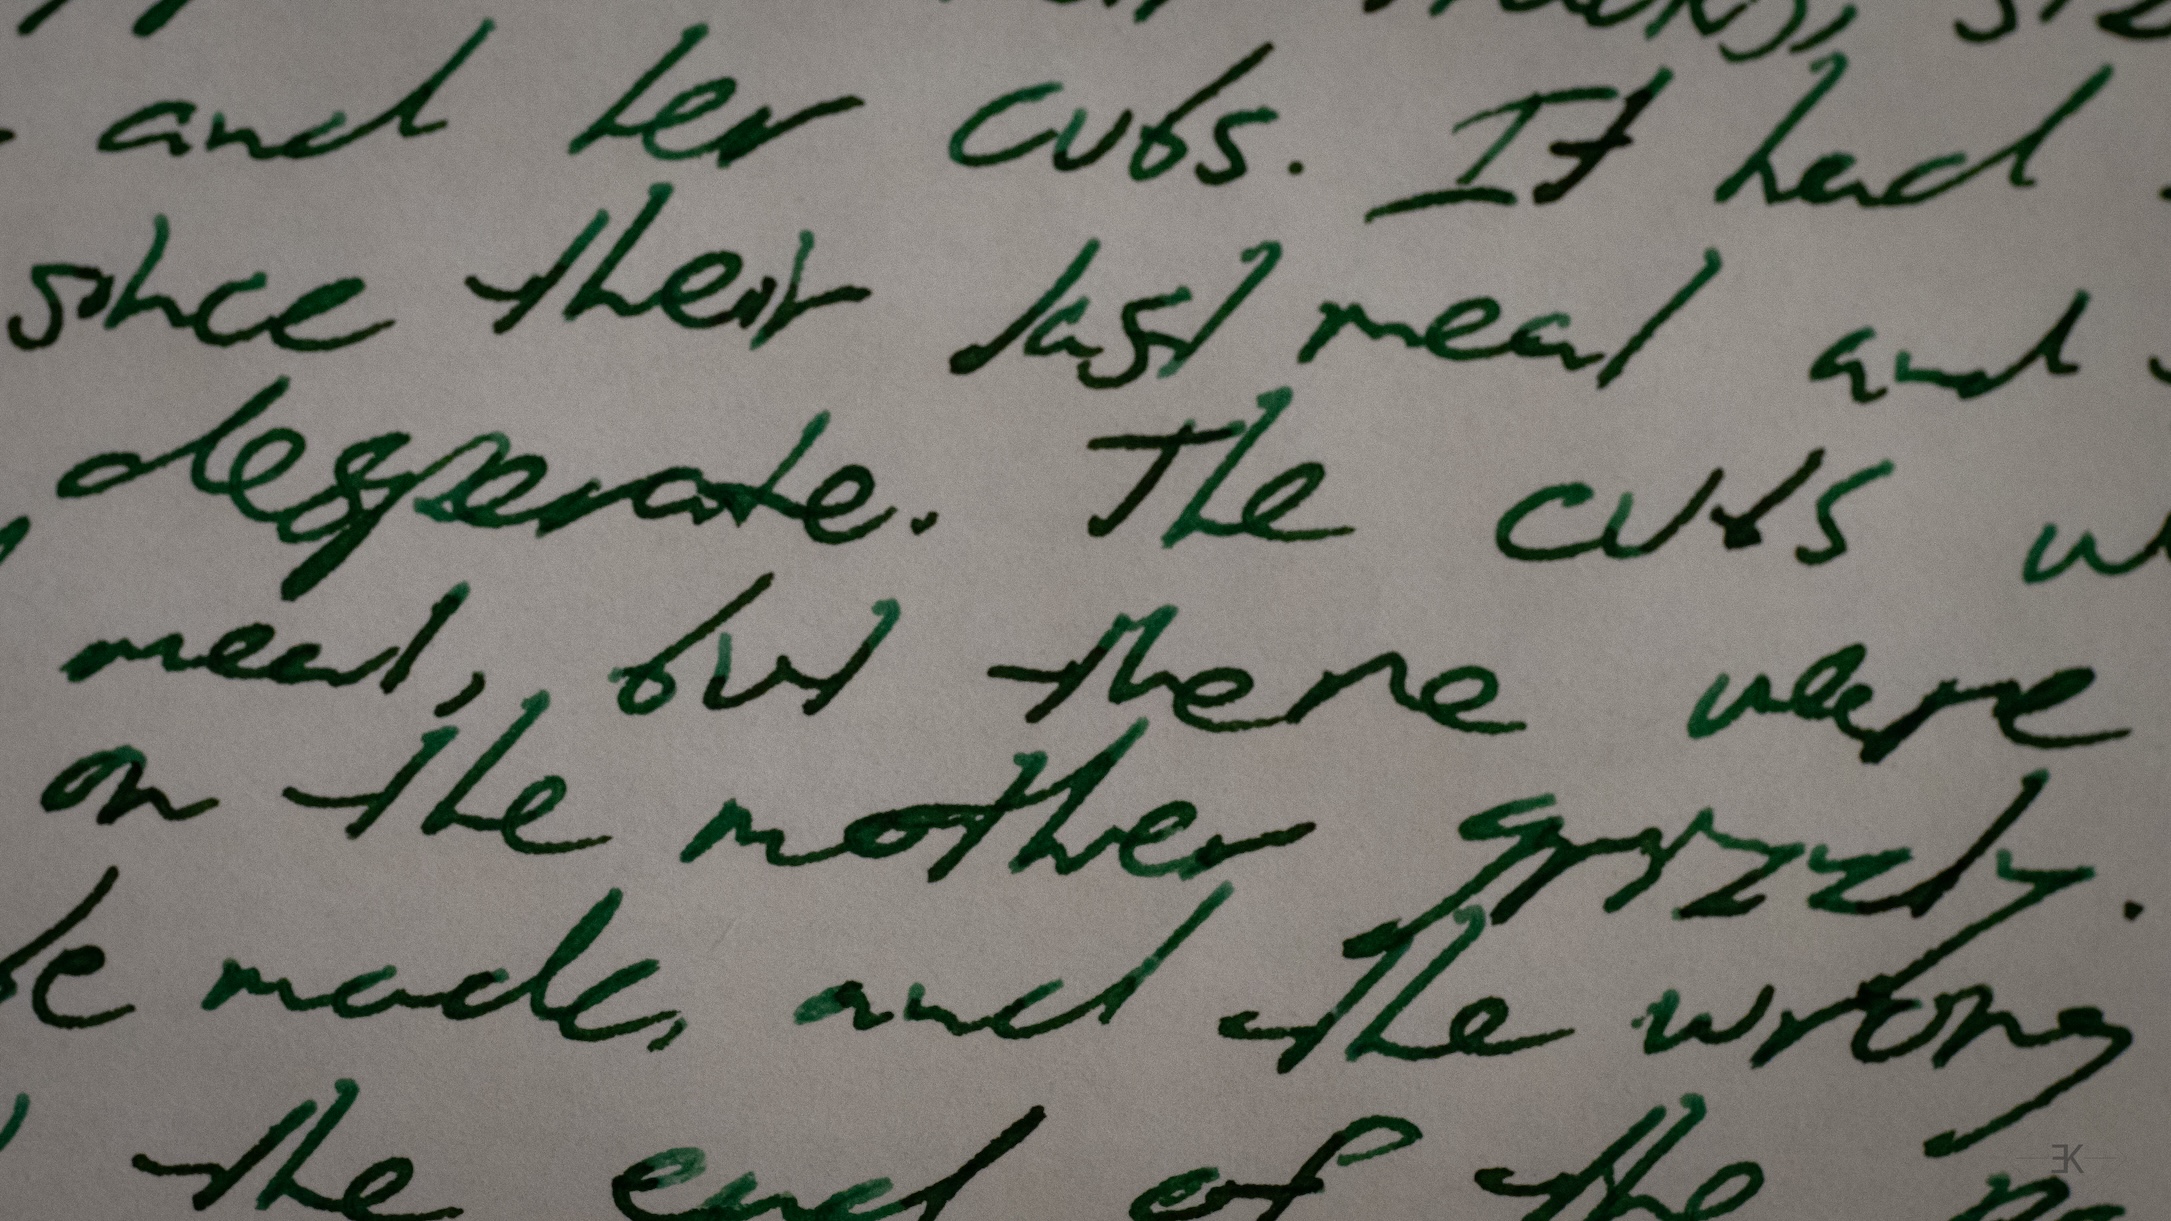 and her cubs. It had
since their last meal and
desperate. The cubs
meal, but there were
on the mother grizzly.
be made, and the wrong
the end of the
EK